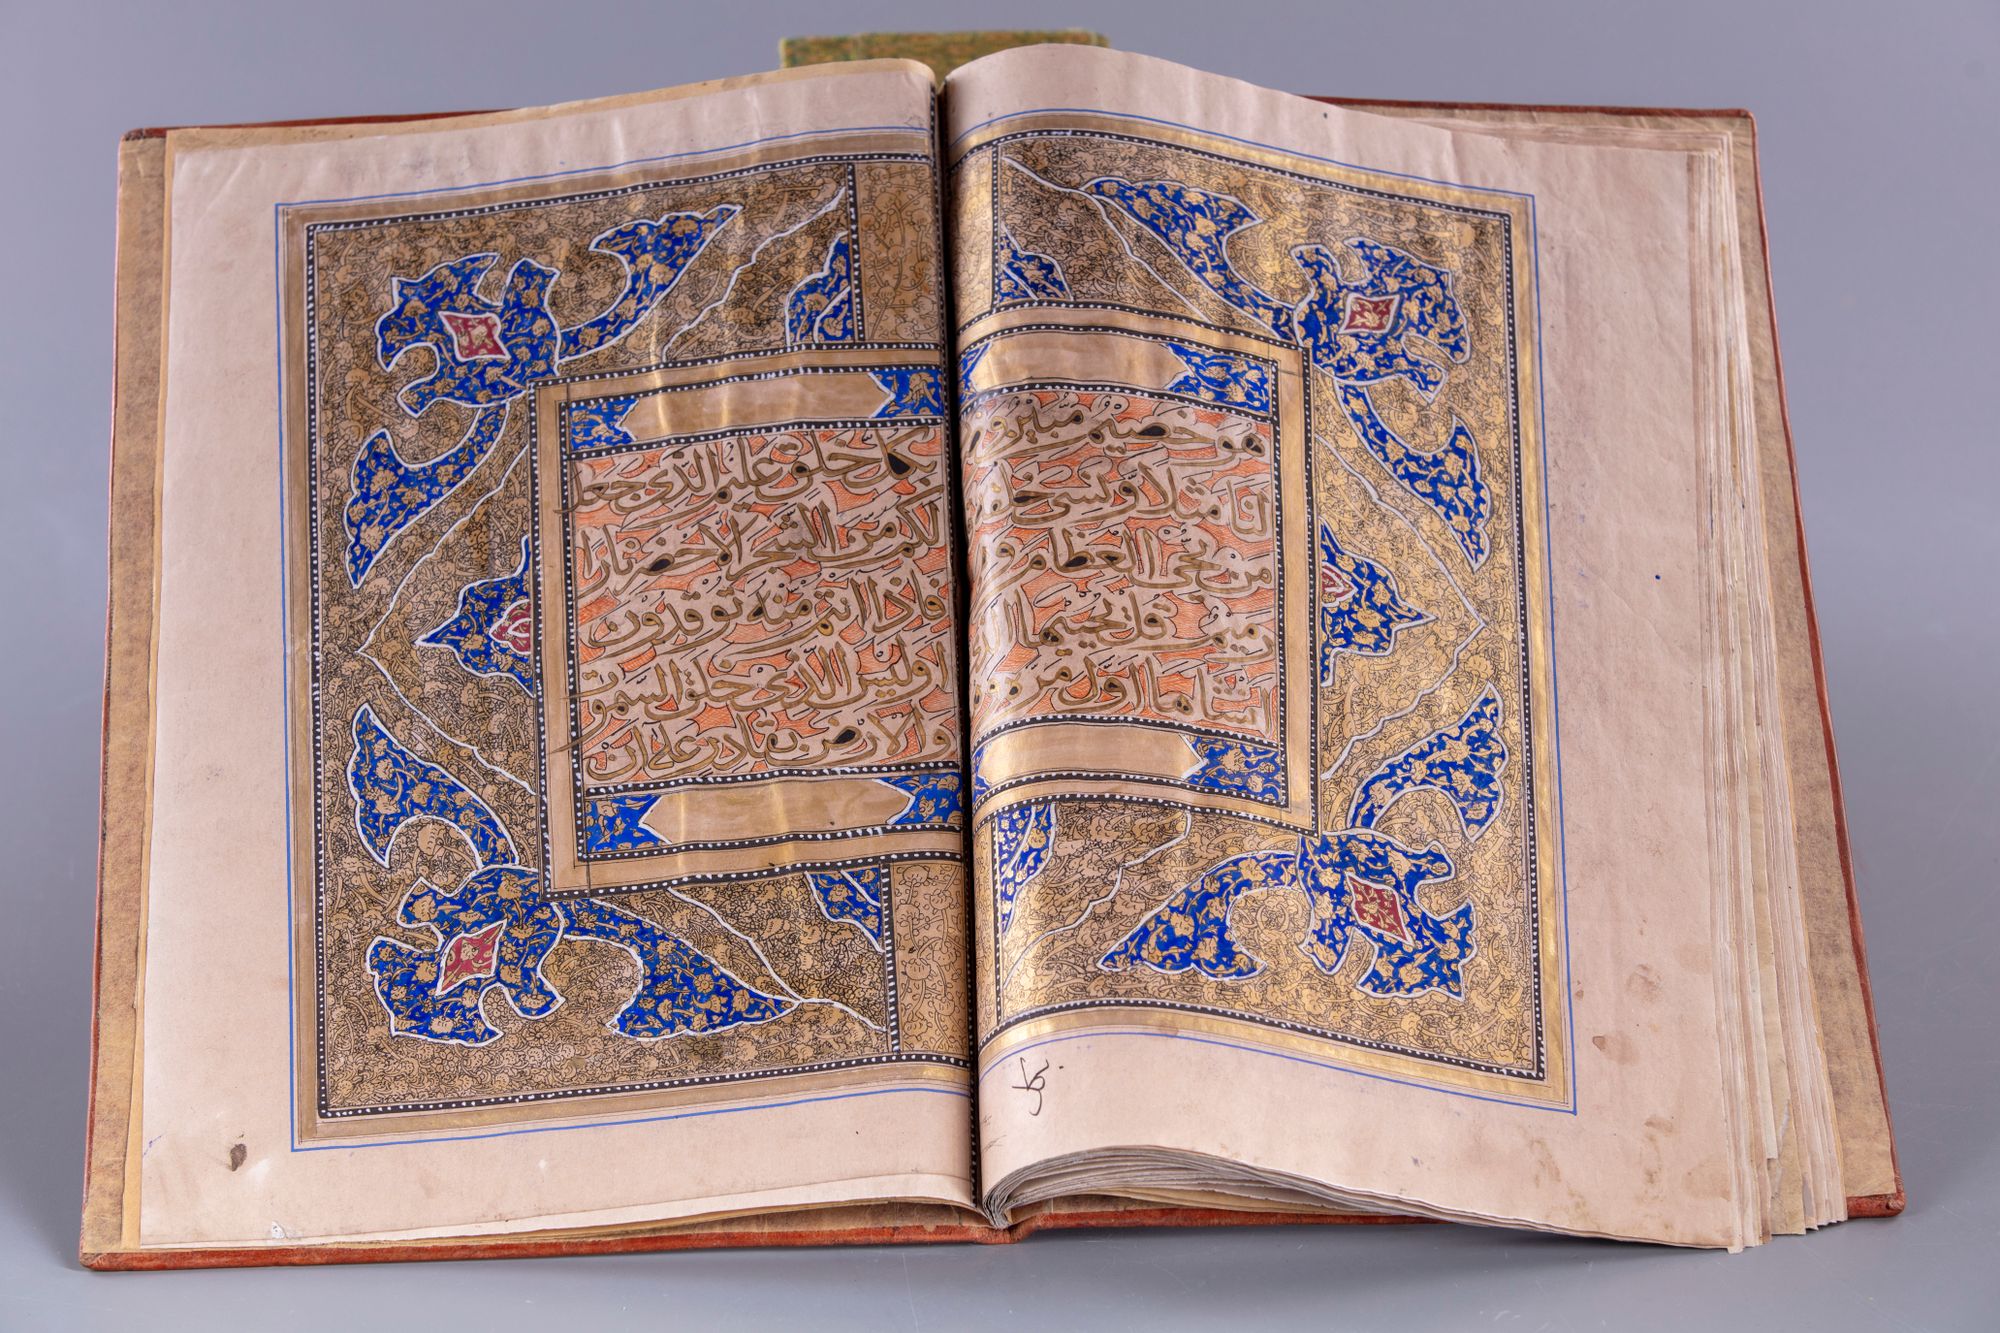 هو خصيم مبين
لنا مثلا ونسى
من يحى العظام
رميم قل يحييها
انشاها اول
بكل
بكل خلق عليم الذى جعل
لكم من الشجر الاخضر نارا
فاذا انتم منه توقدون
اوليس الذى خلق السموت
والارض بقادر على ان